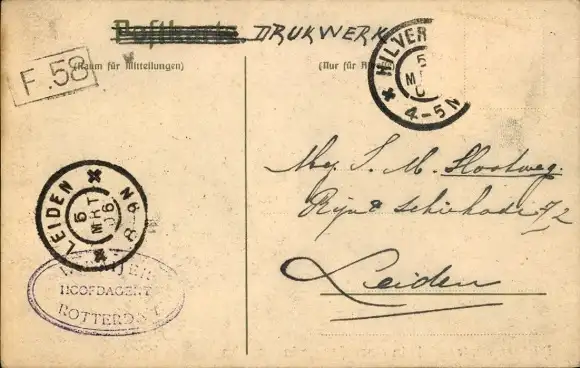 Postkarte. DRUKWERK
(Raum für Mitteilungen)
(Nur für
F.58
HILVER
5
4-5 N
LEIDEN
5
MRT
06
8-9N
HOOFDAGENT
ROTTERDAM
Mej. S. M. Slootweg.
Rijn & Schiekade 72
Leiden